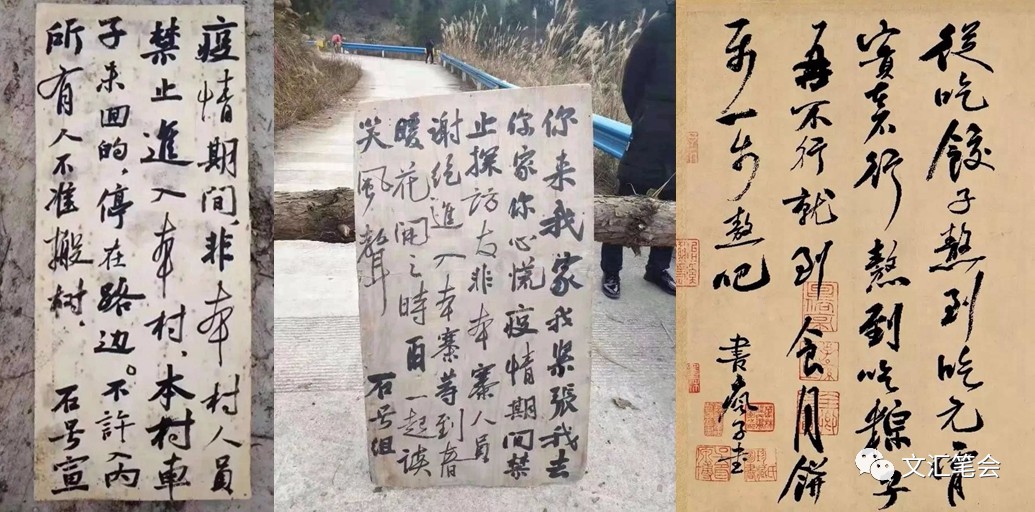 疫情期间,非本村人员
禁止進入本村、本村車
子未回的,停在路边。不許入内
所有人不准搬树、
石号宣
你来我家我紧張我去
你家你心慌疫情期间禁
止探訪友非本寨人員
谢绝進入本寨等到春
暖花開之時再一起谈
笑風聲
石号组
從吃餃子熬到吃元宵
實在不行熬到吃粽子
再不行就到食月餅
步一步熬吧
書瘋子書
文汇笔会